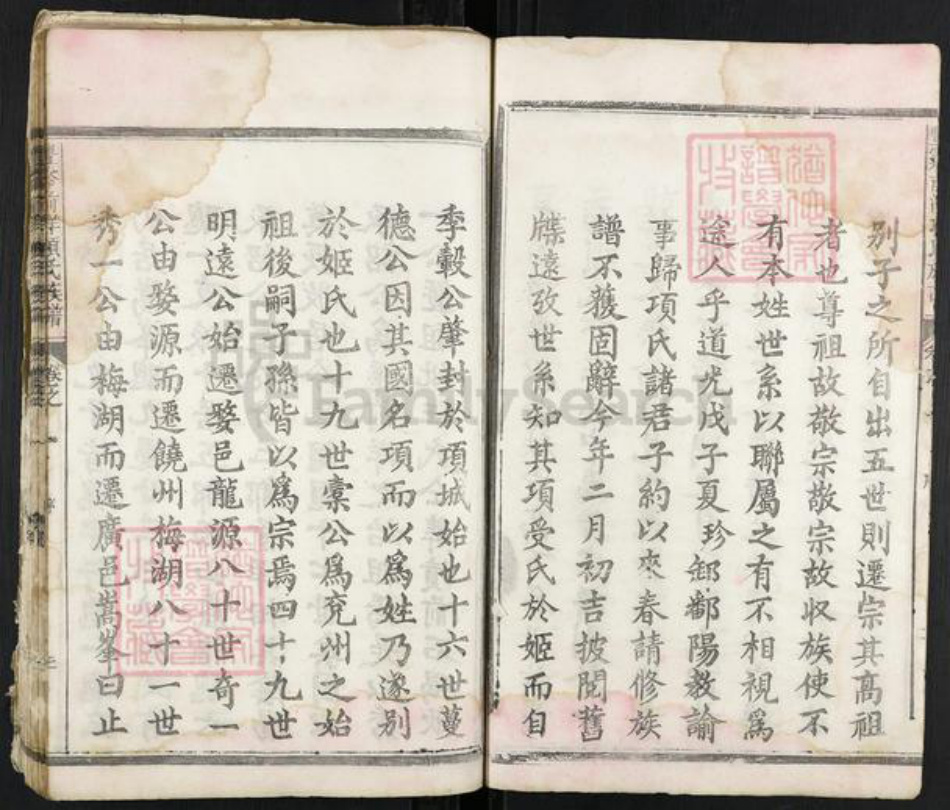 别子之所自出五世則遷宗其高祖
者也尊祖故敬宗敬宗故収族使不
有本姓世系以聯屬之有不相視爲
途人乎道光戊子夏珍卸鄱陽教諭
事歸項氏諸君子約以來春請修族
譜不獲固辭今年二月初吉披閱舊
牒遠攷世系知其項受氏於姬而自
季轂公肇封於項城始也十六世蔓
德公因其國名項而以爲姓乃遂别
於姬氏也十九世橐公爲兖州之始
祖後嗣子孫皆以爲宗焉四十九世
明遠公始遷婺邑龍源八十世奇一
公由婺源而遷饒州梅湖八十一世
秀一公由梅湖而遷廣邑嵩峯曰止
項氏族譜
卷之
FamilySearch